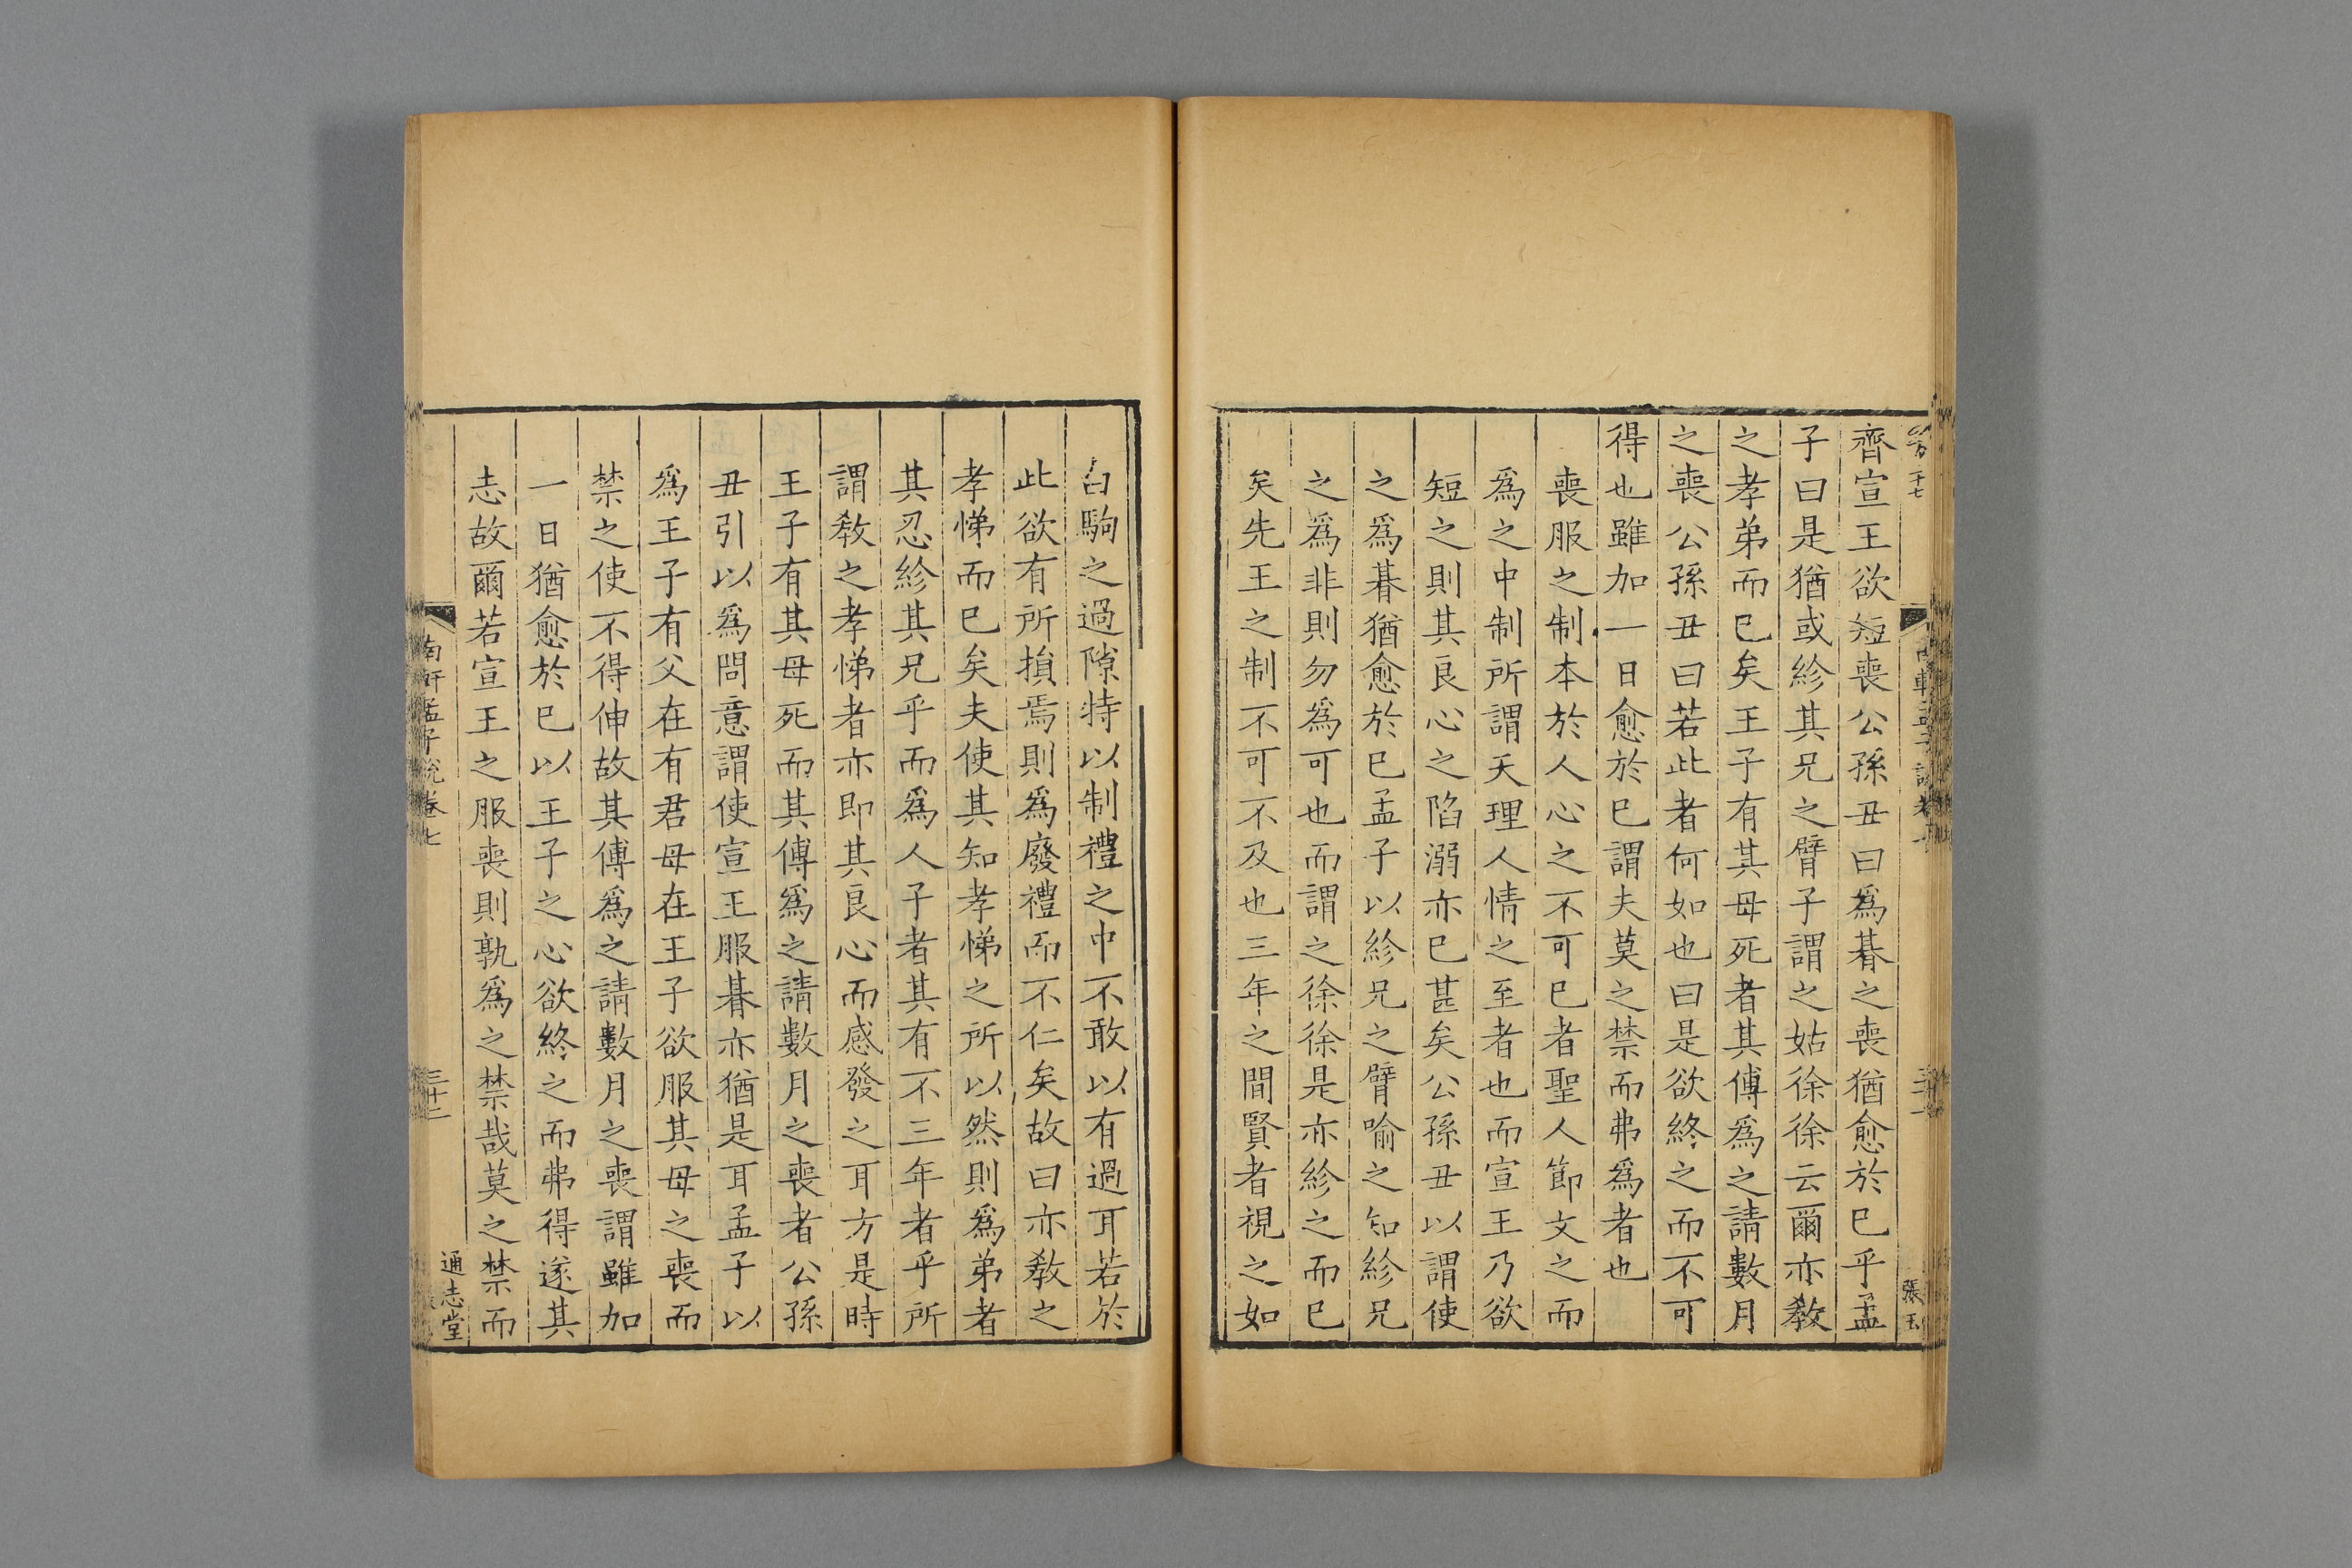 齊宣王欲短喪公孫丑曰爲朞之喪猶愈於已乎孟
子曰是猶或紾其兄之臂子謂之姑徐徐云爾亦敎
之孝弟而已矣王子有其母死者其傅爲之請數月
之喪公孫丑曰若此者何如也曰是欲終之而不可
得也雖加一日愈於已謂夫莫之禁而弗爲者也
喪服之制本於人心之不可已者聖人節文之而
爲之中制所謂天理人情之至者也而宣王乃欲
短之則其良心之陷溺亦已甚矣公孫丑以謂使
之爲朞猶愈於已孟子以紾兄之臂喻之知紾兄
之爲非則勿爲可也而謂之徐徐是亦紾之而已
矣先王之制不可不及也三年之間賢者視之如
張玉
白駒之過隙特以制禮之中不敢以有過耳若於
此欲有所損焉則爲廢禮而不仁矣故曰亦敎之
孝悌而已矣夫使其知孝悌之所以然則爲弟者
其忍紾其兄乎而爲人子者其有不三年者乎所
謂敎之孝悌者亦即其良心而感發之耳方是時
王子有其母死而其傅爲之請數月之喪者公孫
丑引以爲問意謂使宣王服朞亦猶是耳孟子以
爲王子有父在有君母在王子欲服其母之喪而
禁之使不得伸故其傅爲之請數月之喪謂雖加
一日猶愈於已以王子之心欲終之而弗得遂其
志故爾若宣王之服喪則孰爲之禁哉莫之禁而
南軒孟子說卷七
三十二
通志堂